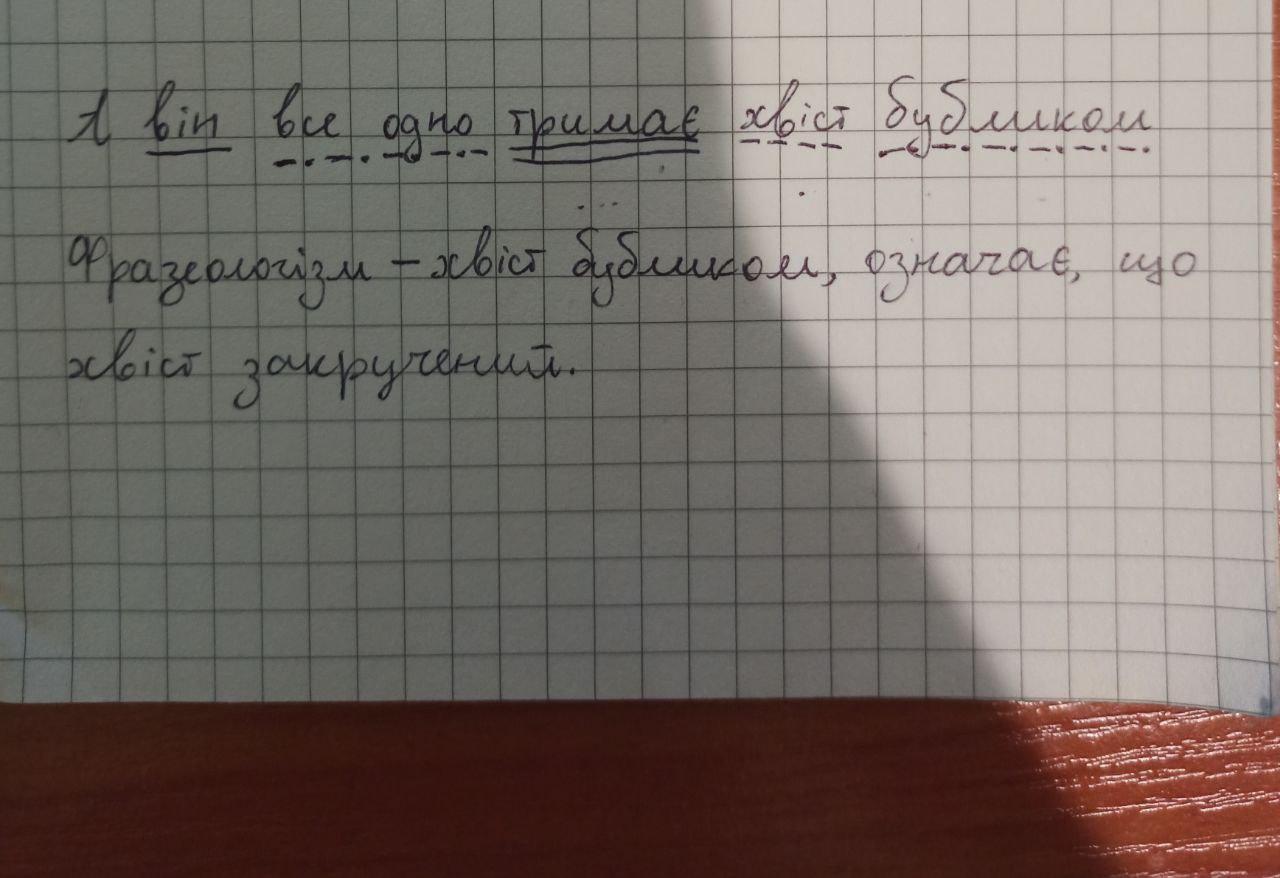 А він все одно тримає хвіст бубликом
Фразеологізм – хвіст бубликом, означає, що
хвіст закручений.